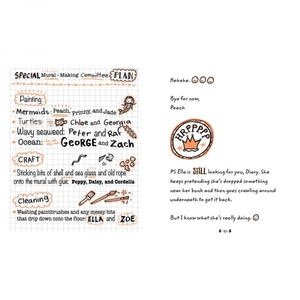 SPECIAL Mural-Making Committee PLAN
Painting
Mermaids: Peach, Prinny, and Jade
Turtles: Chloe and Georgia
Wavy seaweed: Peter and Raf
Ocean: GEORGE and Zach
CRAFT
Sticking bits of shell and sea glass and old rope
onto the mural with glue: Poppy, Daisy, and Cordelia
Cleaning
Washing paintbrushes and any messy bits
that drip down onto the floor: ELLA and ZOE
Hehehe.
Bye for now,
Peach
HRFPPP
PS Ella is STILL looking for you, Diary. She
keeps pretending she's dropped something
near her bush and then goes crawling around
underneath to get it back.
But I know what she's really doing.